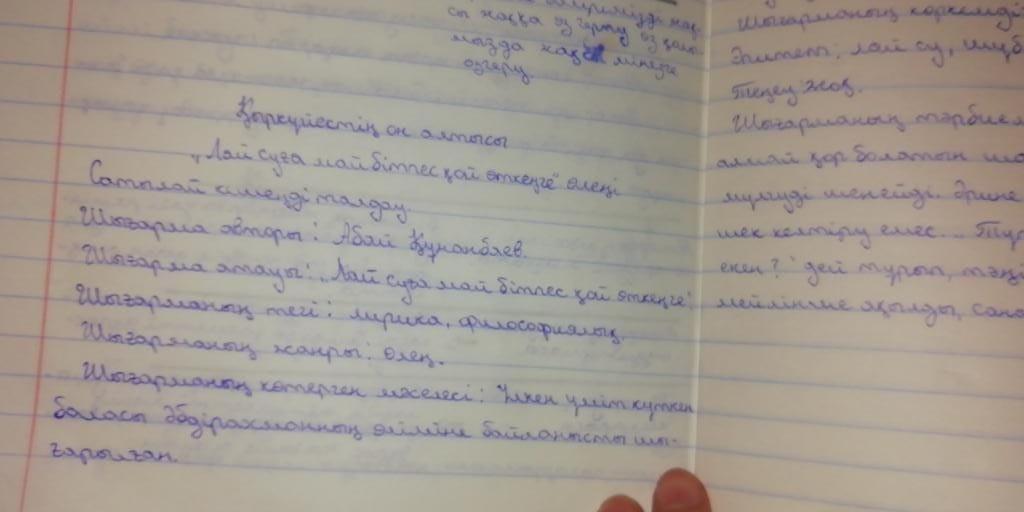 сы жаққа өзгерту өз қалы-
мызда жақсы мінезге
өзгеру.
Қыркүйестің он алтысы
„Лай суға май бітпес қой өткенге" өлеңі
Сатылай кешенді талдау.
Шығарма авторы: Абай Құнанбаев.
Шығарма атауы: „Лай суға май бітпес қой өткенге"
Шығарманың тегі: лирика, философиялық.
Шығарманың жанры: өлең.
Шығарманың көтерген мәселесі: Үлкен үміт күткен
баласы Әбдірахманның өліміне байланысты шы-
ғарылған.
Шығарманың көркемді
Эпитет: лай су, шұб
Теңеу жоқ.
Шығарманың тәрбиел
алмай қор болатын
мүлгуді шенейді. Әрине
шек келтіру емес...
екен? дей тұрып, тәңі
мейлінше ақылды, сана